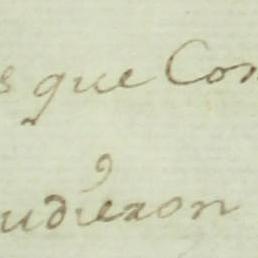 s que Con
udieron